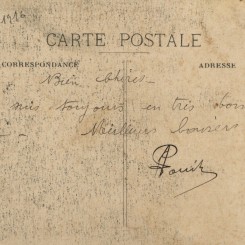 1916
CARTE POSTALE
CORRESPONDANCE
ADRESSE
Bien chères
suis toujours en très bon
Meilleurs baisers